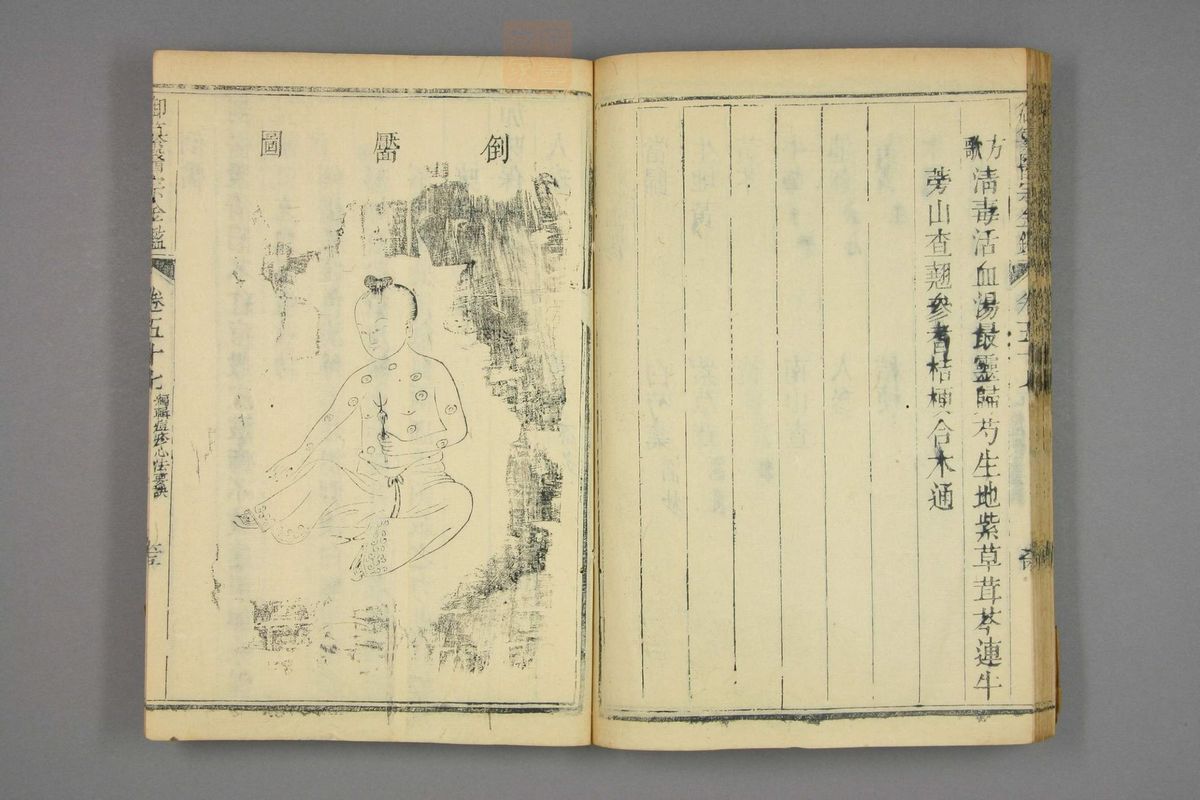 方歌 清毒活血湯最靈歸芍生地紫草茸芩連牛
蒡山查翹參耆桔梗合木通
倒靨圖
御纂醫宗金鑑 卷五十七 編輯痘疹心法要訣